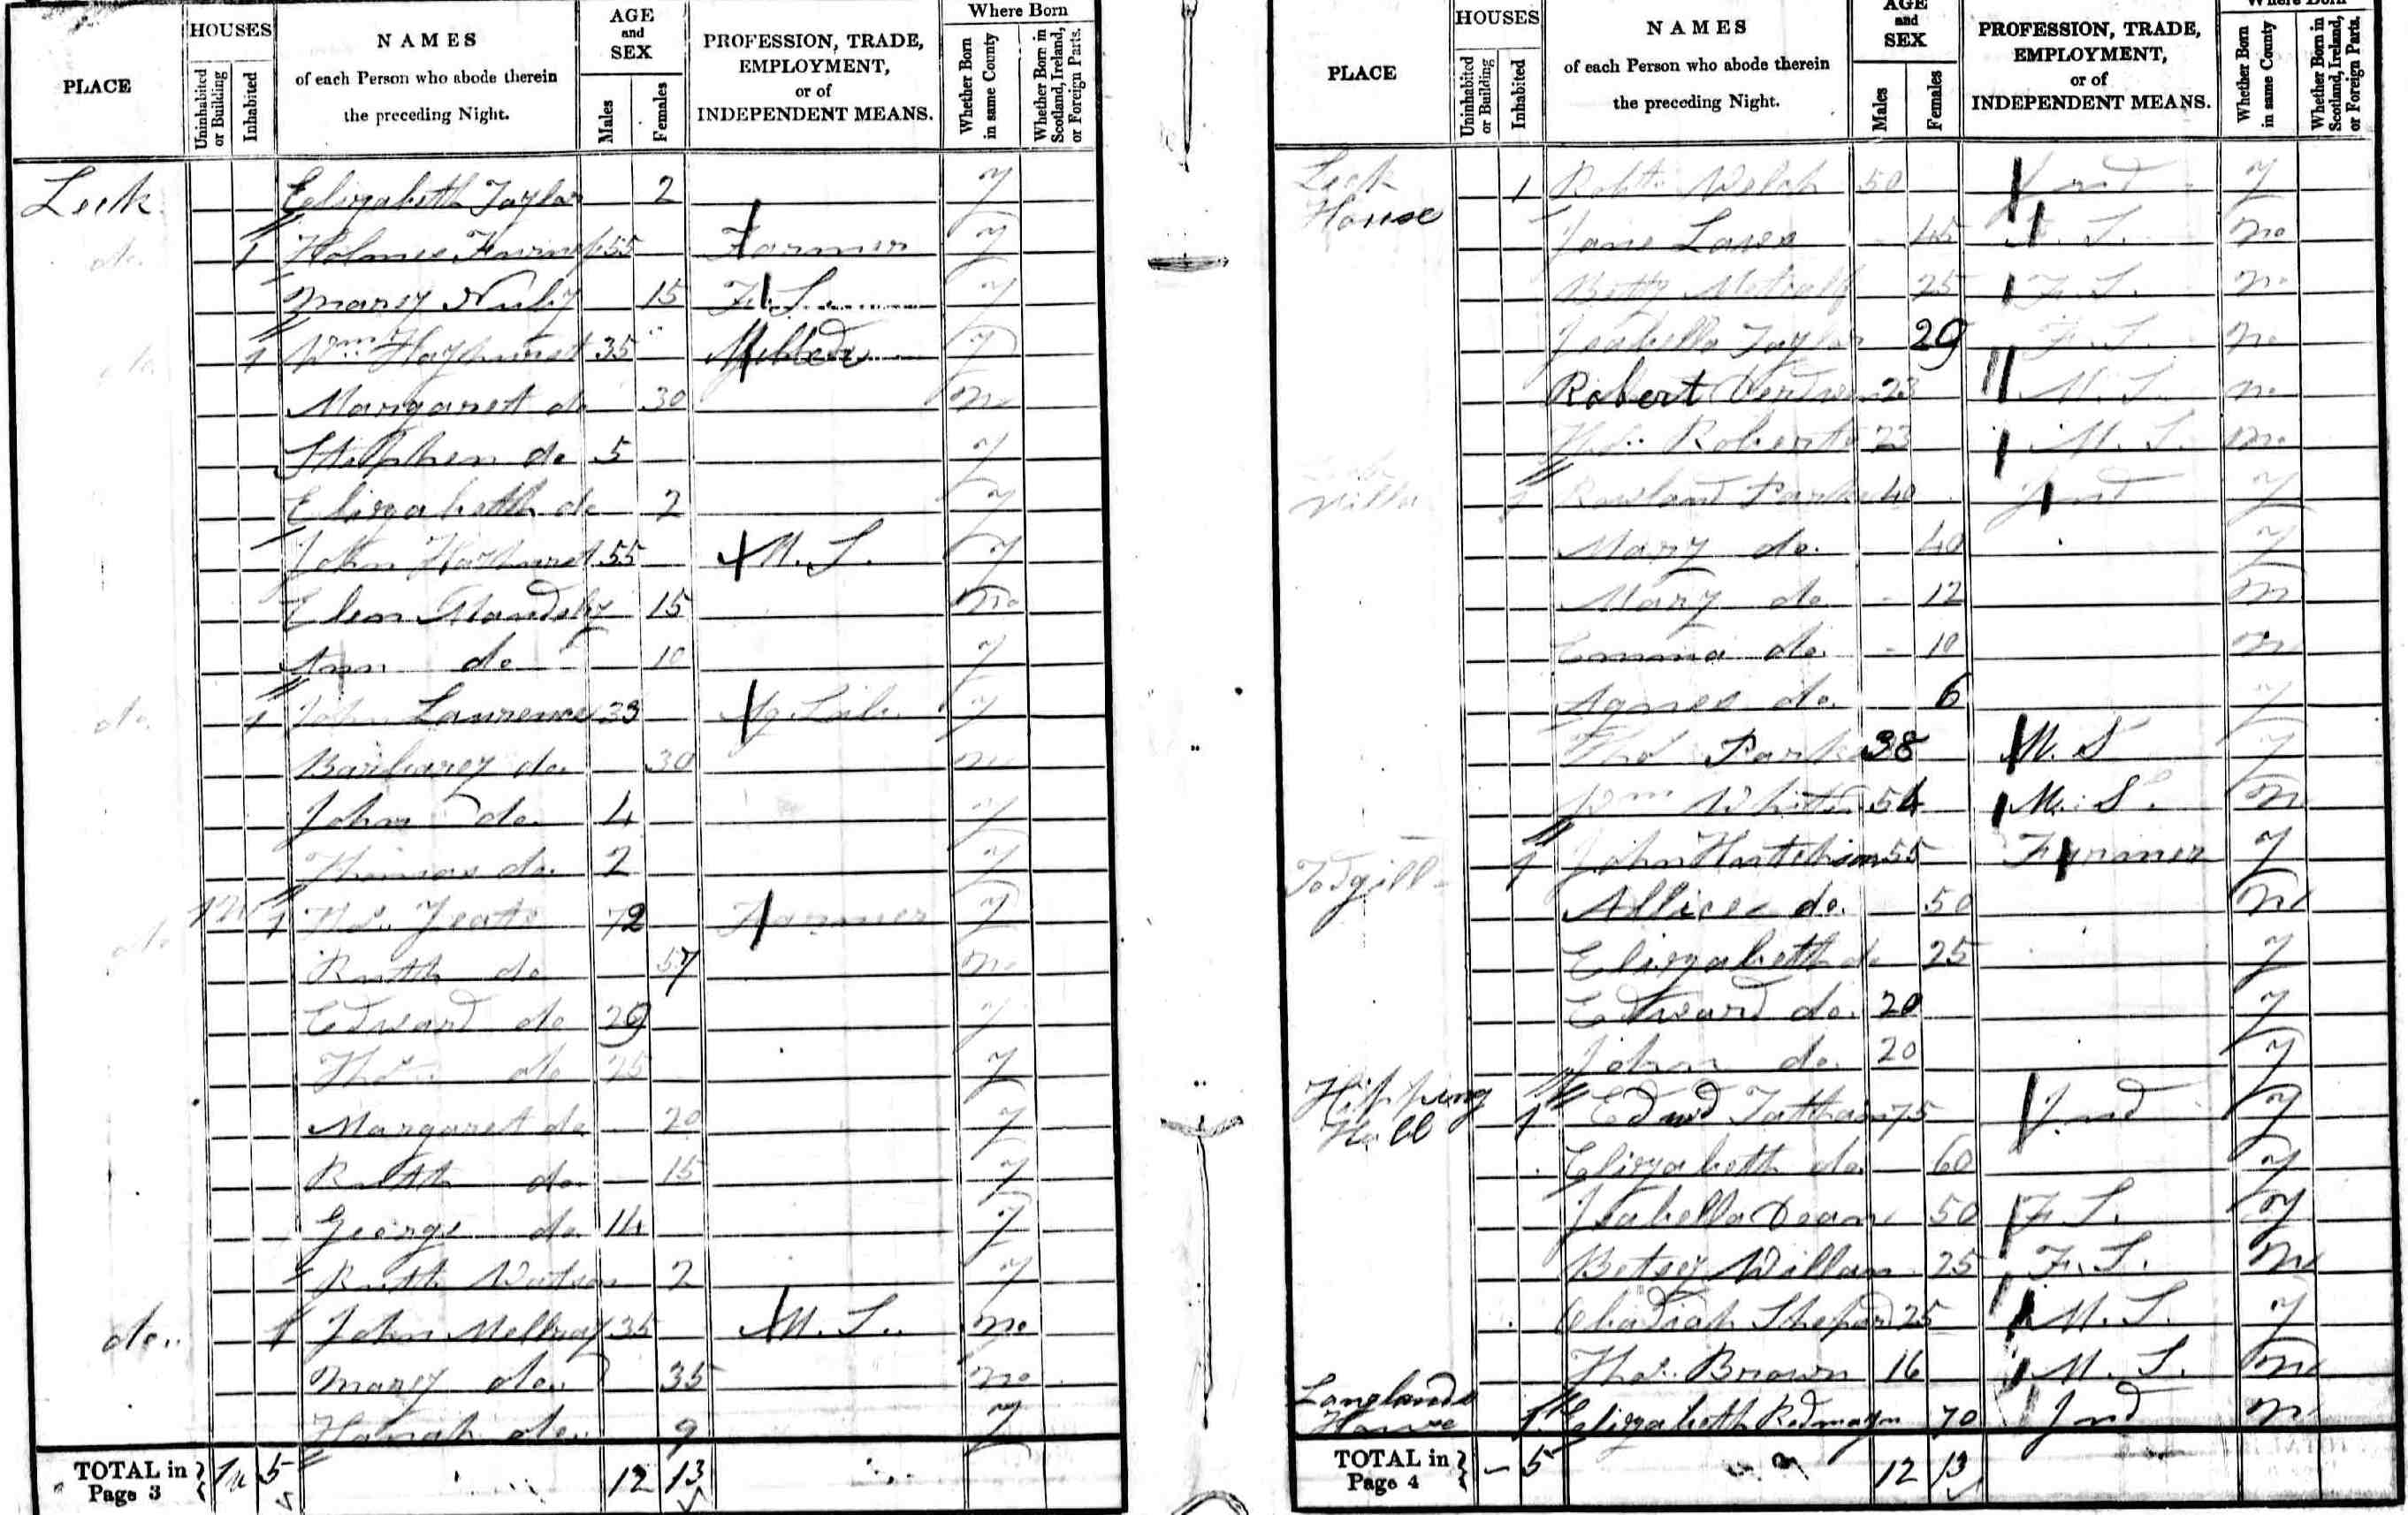 PLACE
HOUSES
Uninhabited or Building
Inhabited
NAMES
of each Person who abode therein
the preceding Night.
AGE
and
SEX
Males
Females
PROFESSION, TRADE,
EMPLOYMENT,
or of
INDEPENDENT MEANS.
Where Born
Whether Born in same County
Whether Born in Scotland, Ireland, or Foreign Parts.
Leek Elizabeth Taylor 2 y
do 1 Holmes 55 Farmer y
Mary 15 F. S. y
1 Wm Hayhurst 35 y
Margaret do 30 no
Stephen do 5 y
Elizabeth do 2 y
John 55 M. S. y
Elen 15 no
Ann do 10 y
do. 1 John Laurence 33 Ag. Lab. y
Barbarey do. 30 no
John do. 4 y
Thomas do. 2 y
do 1 Thos. Yeats 72 Farmer y
Ruth do 57 no
Edward do 29 y
Thos. do 25 y
Margaret do 20 y
Ruth do. 15 y
George do. 14 y
Ruth Watson 2 y
do.. 1 John 35 M. S.. no
Mary do. 35 no
Hanah do.. 9 y
TOTAL in Page 3 5 12 13
PLACE
HOUSES
Uninhabited or Building
Inhabited
NAMES
of each Person who abode therein
the preceding Night.
AGE
and
SEX
Males
Females
PROFESSION, TRADE,
EMPLOYMENT,
or of
INDEPENDENT MEANS.
Where Born
Whether Born in same County
Whether Born in Scotland, Ireland, or Foreign Parts.
Leek House 1 Robt. Welch 50 Ind y
Jane 45 F. S. no
Betty Metcalf 25 F. S. no
Isabella Taylor 29 F. S. no
Robert 23 M. S. no
Thos. Roberts 23 M. S. no
Villa 1 Rowland Parker 40 Ind y
Mary do. 40 y
Mary do 12 n
Emma do. 10 n
Agnes do. 6 y
Thos Park 38 M. S y
Wm 54 M. S. n
Todgill 1 John 55 Farmer y
Allice do. 50 n
Elizabeth do 25 y
Edward do. 20 y
John do. 20 y
Hipping Hall 1 Edwd Tatham 75 Ind y
Elizabeth do. 60 y
Isabella Dean 50 F. S. y
Betsey Willan 25 F. S. n
Obadiah Shepard 25 M. S. y
Thos. Brown 16 M. S. n
Langlands House 1 Elizabeth Redmayn 70 Ind n
TOTAL in Page 4 - 5 12 13